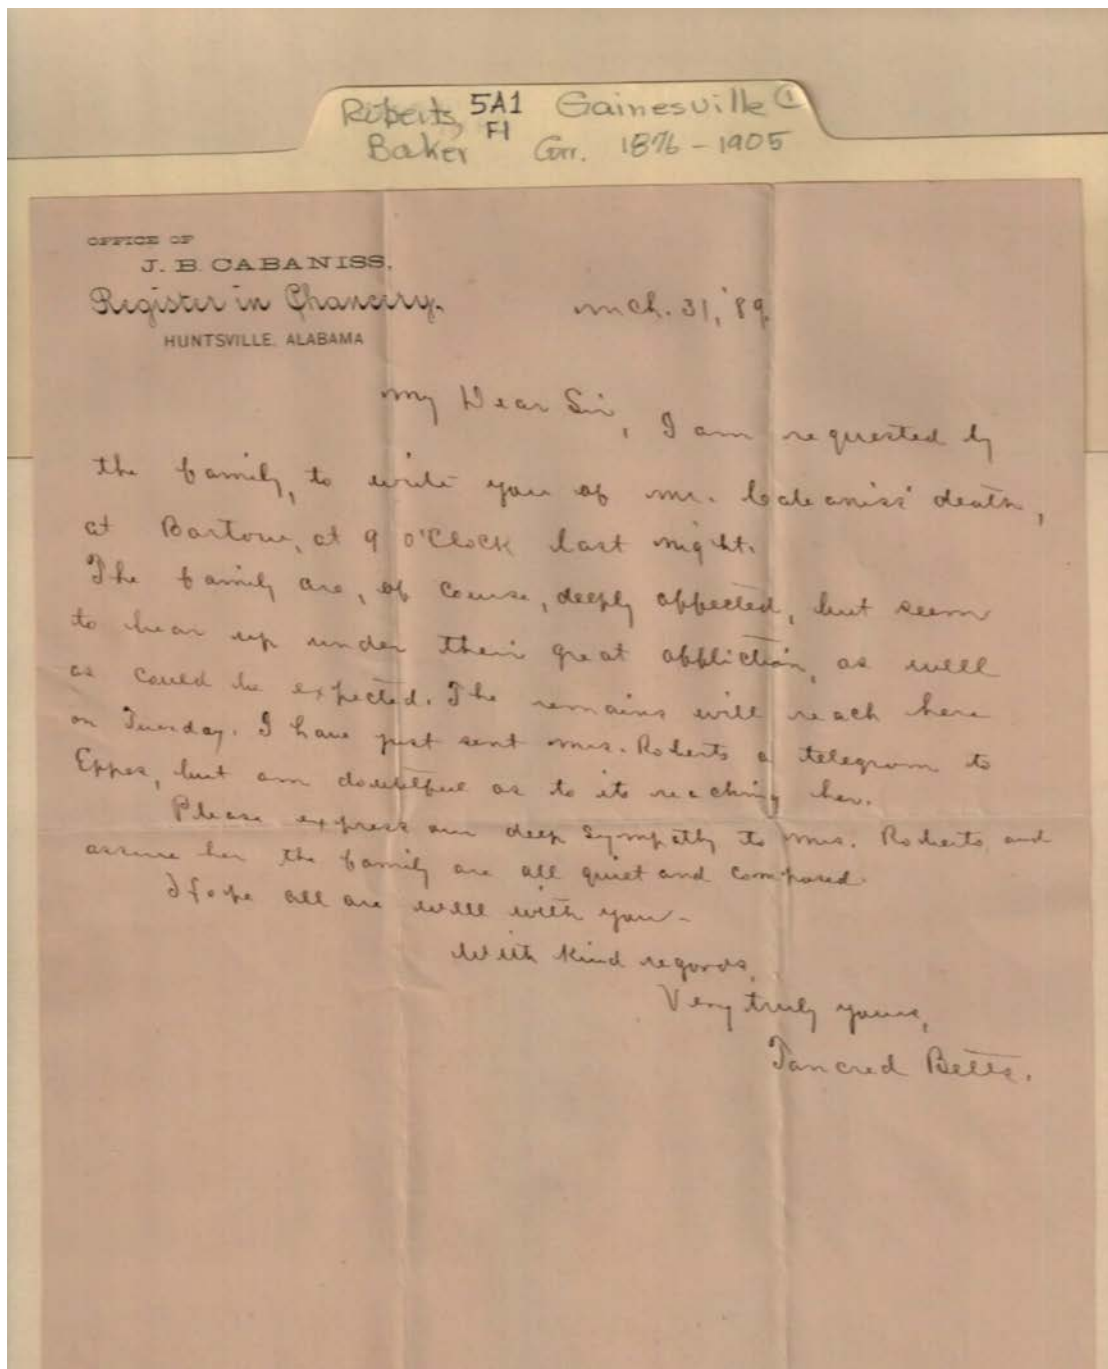 Roberts, 5A1 Gainesville ①
Baker F1 Corr. 1876-1905
OFFICE OF
J. B. CABANISS,
Register in Chancery.
HUNTSVILLE, ALABAMA
Mch. 31, '89.
My Dear Sir, I am requested by
the family, to write you of Mr. Cabaniss' death,
at Bartow, at 9 o'Clock last night.
The family are, of course, deeply affected, but seem
to bear up under their great affliction, as well
as could be expected. The remains will reach here
on Tuesday. I have just sent Mrs. Roberts a telegram to
Eppes, but am doubtful as to its reaching her.
Please express our deep sympathy to Mrs. Roberts, and
assure her the family are all quiet and composed.
I hope all are well with you-
With kind regards,
Very truly yours,
Tancred Betts.